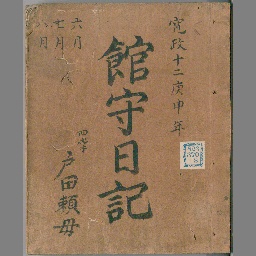 寛政十二庚申年
館守日記
六月
七月
八月
戸田頼母